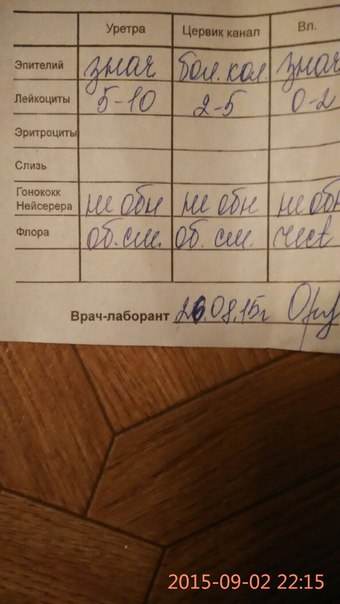 Уретра Цервик канал Вл.
Эпителий знач бол. кол. знач
Лейкоциты 5-10 2-5 0-2
Эритроциты
Слизь
Гонококк
Нейсерера не обн не обн не обн
Флора об. см. об. см.
Врач-лаборант 26.08.15г
2015-09-02 22:15